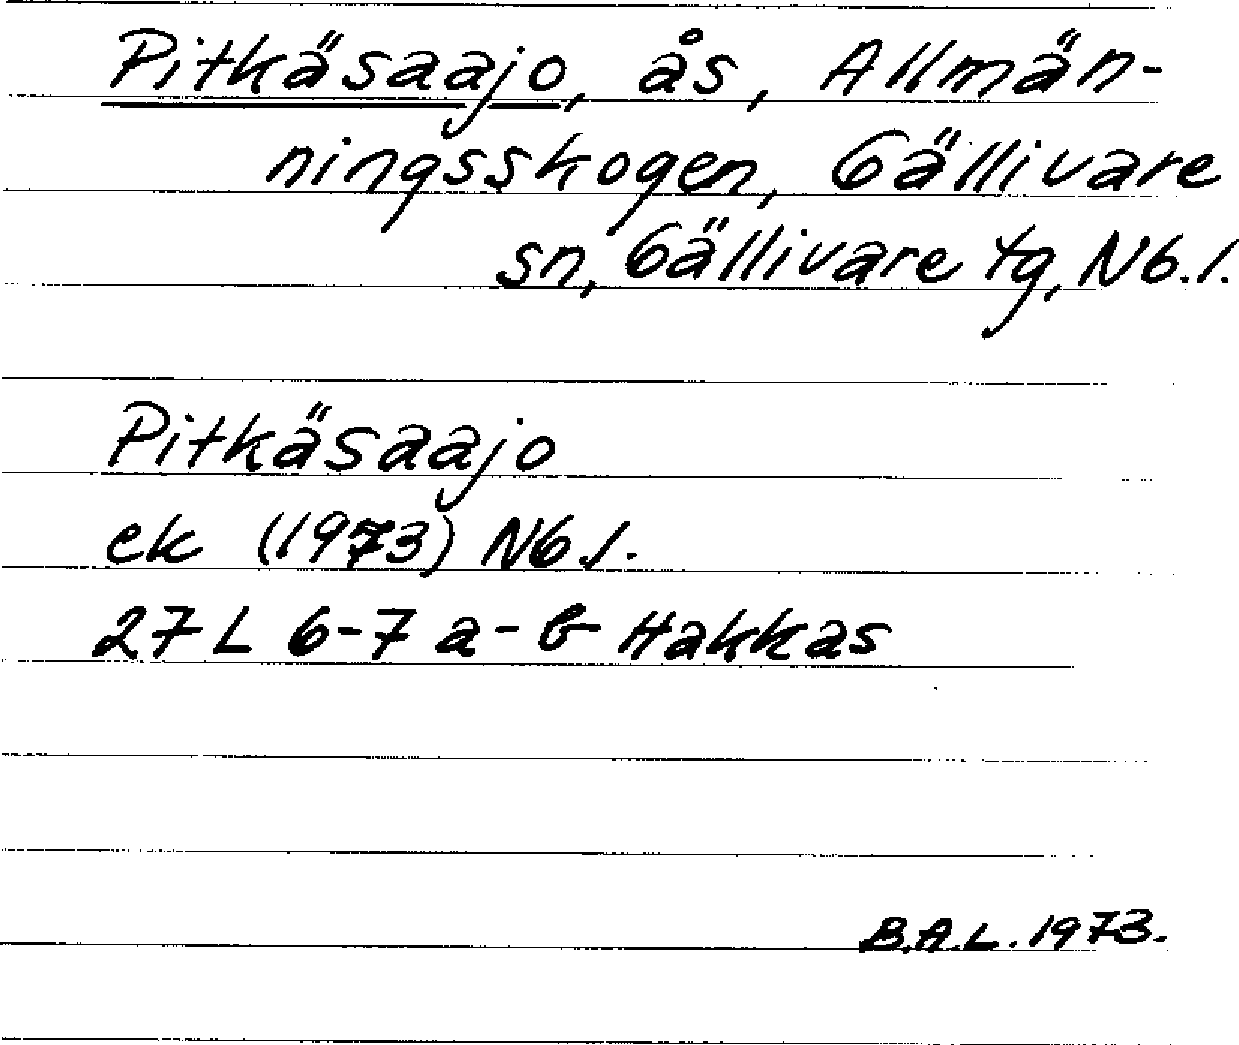 Pitkäsaajo, ås, Allmän-
ningsskogen, Gällivare
sn, Gällivare tg, Nb.l.
Pitkäsaajo
ek (1973) Nb.l.
27 L 6-7 a-b Hakkas
B.A.L. 1973.